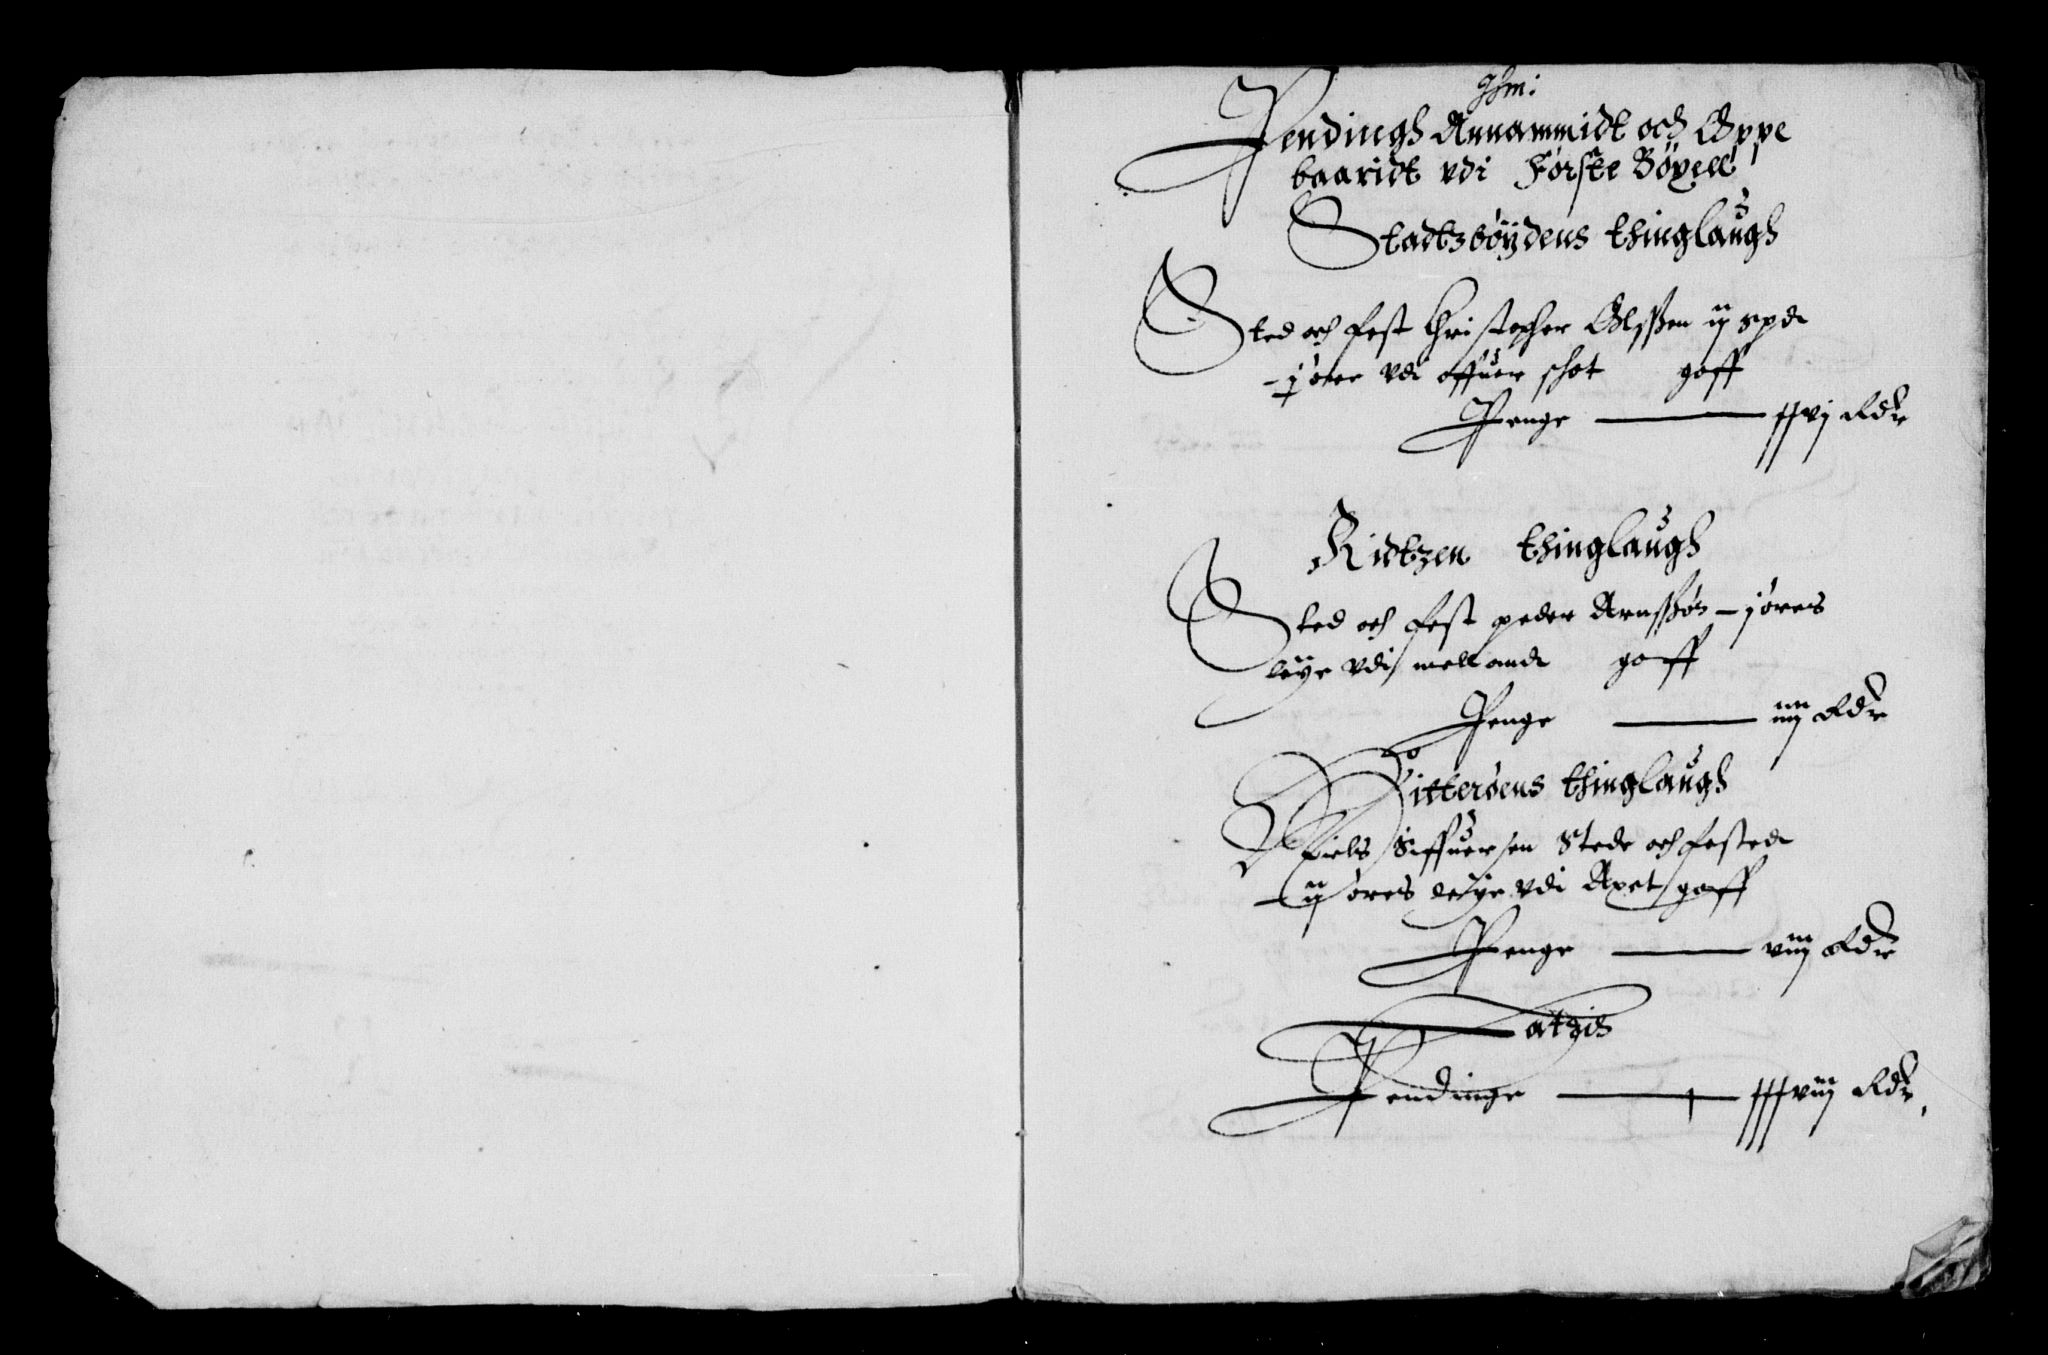 Jhm:
Pendingh Annammidt och Oppe
baaridt vdi Første Böxell
Stadtzböydens thinglaugh
Sted och fest Christopher Olssen ij spd
- j ører vdi offuer schot gaff
Penge ——— xxvj Rdr
Ridtzen thinglaugh
Sted och fest peder Arnssøn - j øres
leÿe vdi melland gaff
Penge ——— iiij Rdr
Hitterøens thinglaugh
Niels Siffuersen Stede och festede
- ij øres leÿe vdi Axet gaff
Penge ——— viij Rdr
Latzis
Pendinge ——— xxxviij Rdr